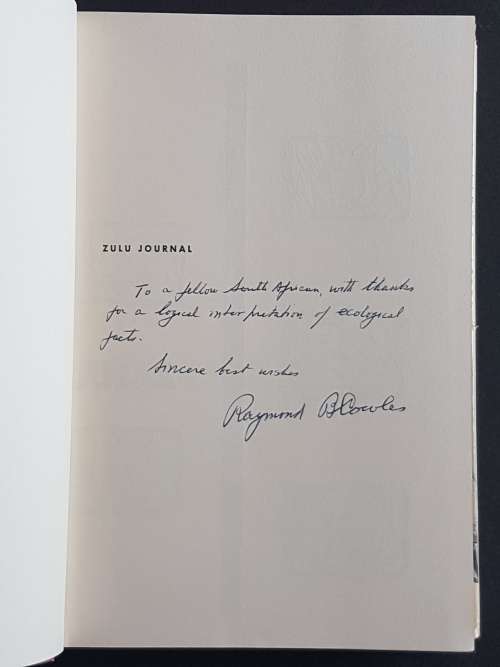 ZULU JOURNAL
To a fellow South African, with thanks
for a logical interpretation of ecological
facts.
Sincere best wishes
Raymond B Cowles